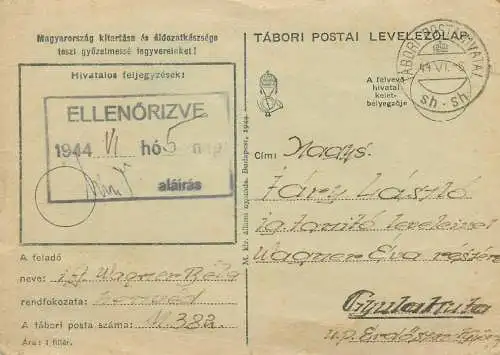 Magyarország kitartása és áldozatkészsége
teszi győzelmessé fegyvereinket!
Hivatalos feljegyzések:
ELLENŐRIZVE
1944 VI hó 5 n
aláírás
A feladó
neve: if. Wagner Béla
rendfokozata: honvéd
A tábori posta száma: M. 382
Ára: 1 fillér.
M. kir. állami nyomda, Budapest, 1944.
TÁBORI POSTAI LEVELEZŐLAP
TÁBORI POSTAHIVATAL
44 VI. -5
sh - sh
A felvevő
hivatal
kelet-
bélyegzője
Cím: Nagys.
Fáry László
ig tanító leveleivel
Wagner Éva részére
Gyulakuta
u.p. Erdőszentgyörgy